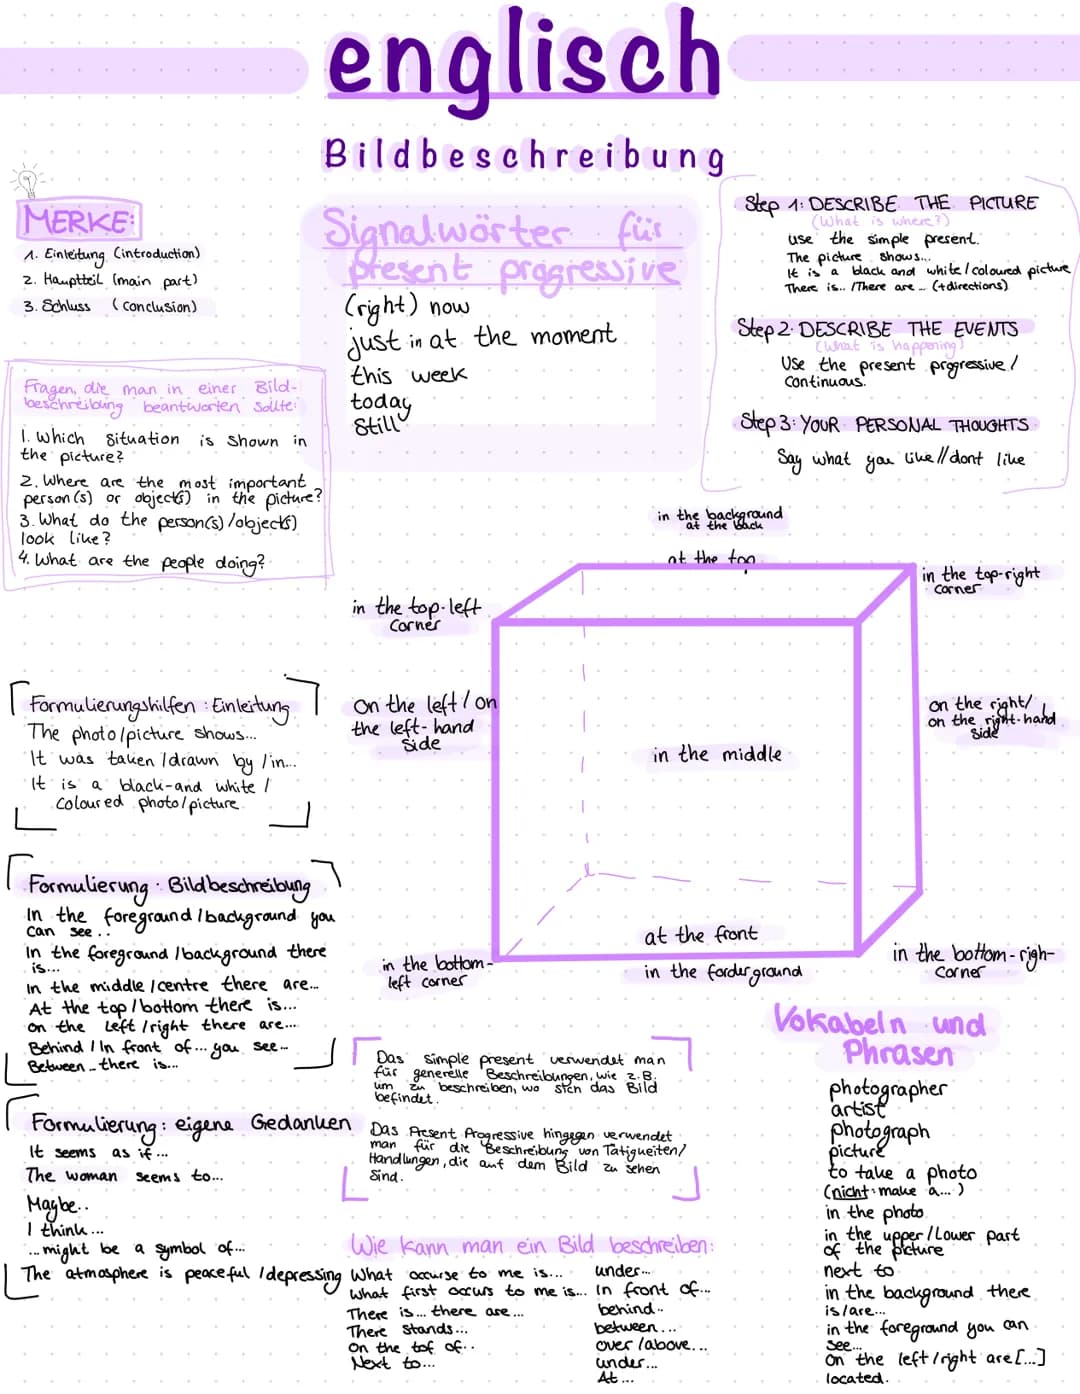 englisch
Bildbeschreibung
MERKE:
1. Einleitung (introduction)
2. Hauptteil (main part)
3. Schluss (conclusion)
Signalwörter für
present progressive
(right) now
just in at the moment
this week
today
Still
Step 1: DESCRIBE THE PICTURE
(What is where?)
use the simple present.
The picture shows...
It is a black and white/coloured picture
There is.. /There are .. (+directions)
Step 2: DESCRIBE THE EVENTS
(What is happening?)
Use the present progressive/
continuous.
Step 3: YOUR PERSONAL THOUGHTS
Say what you like//dont like
Fragen, die man in einer Bild-
beschreibung beantworten sollte:
1. Which situation is shown in
the picture?
2. Where are the most important
person(s) or object(s) in the picture?
3. What do the person(s)/object(s)
look like?
4. What are the people doing?
in the background
at the back
at the top
in the top-left
corner
in the top-right
corner
On the left / on
the left-hand
side
in the middle
on the right/
on the right-hand
side
at the front
in the forderground
in the bottom-
left corner
in the bottom-righ-
corner
Formulierungshilfen: Einleitung
The photo/picture shows...
It was taken /drawn by /in...
It is a black-and white /
coloured photo/picture
Formulierung: Bildbeschreibung
In the foreground /background you
can see ..
In the foreground /background there
is...
In the middle /centre there are...
At the top/bottom there is...
on the left /right there are...
Behind / In front of... you see...
Between ... there is...
Formulierung: eigene Gedanken
It seems as if...
The woman seems to...
Maybe..
I think...
...might be a symbol of...
The atmosphere is peaceful /depressing
Das simple present verwendet man
für generelle Beschreibungen, wie z.B.
um zu beschreiben, wo sich das Bild
befindet.
Das Present Progressive hingegen verwendet
man für die Beschreibung von Tätigkeiten/
Handlungen, die auf dem Bild zu sehen
sind.
Wie kann man ein Bild beschreiben:
What occurse to me is...
What first occurs to me is...
There is... there are...
There stands...
On the tof of..
Next to...
under...
In front of...
behind..
between...
over /above...
under...
At...
Vokabeln und
Phrasen
photographer
artist
photograph
picture
to take a photo
(nicht: make a...)
in the photo
in the upper/Lower part
of the picture
next to
in the background there
is/are...
in the foreground you can
see...
On the left/right are [...]
located.